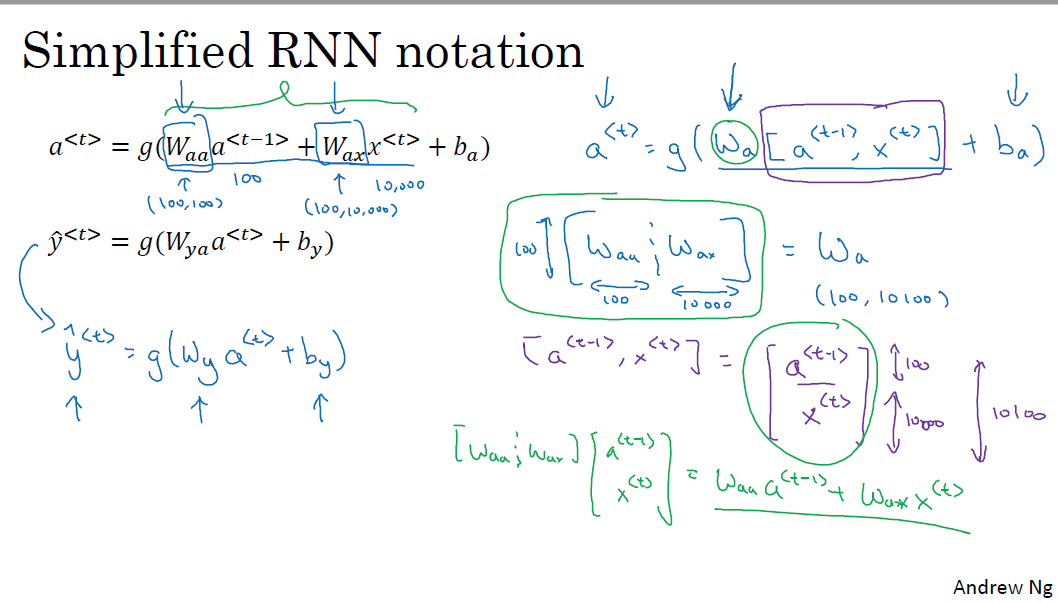 Simplified RNN notation
a<t> = g(Waa a<t−1> + Wax x<t> + ba)
100
10,000
(100,100)
(100,10,000)
ŷ<t> = g(Wya a<t> + by)
ŷ<t> = g(Wy a<t> + by)
a<t> = g(Wa [a<t-1>, x<t>] + ba)
100 [Waa ¦ Wax] = Wa
100
10000
(100, 10100)
[a<t-1>, x<t>] = [a<t-1> x<t>]
100
10000
10100
[Waa ¦ Wax] [a<t-1> x<t>] = Waa a<t-1> + Wax x<t>
Andrew Ng